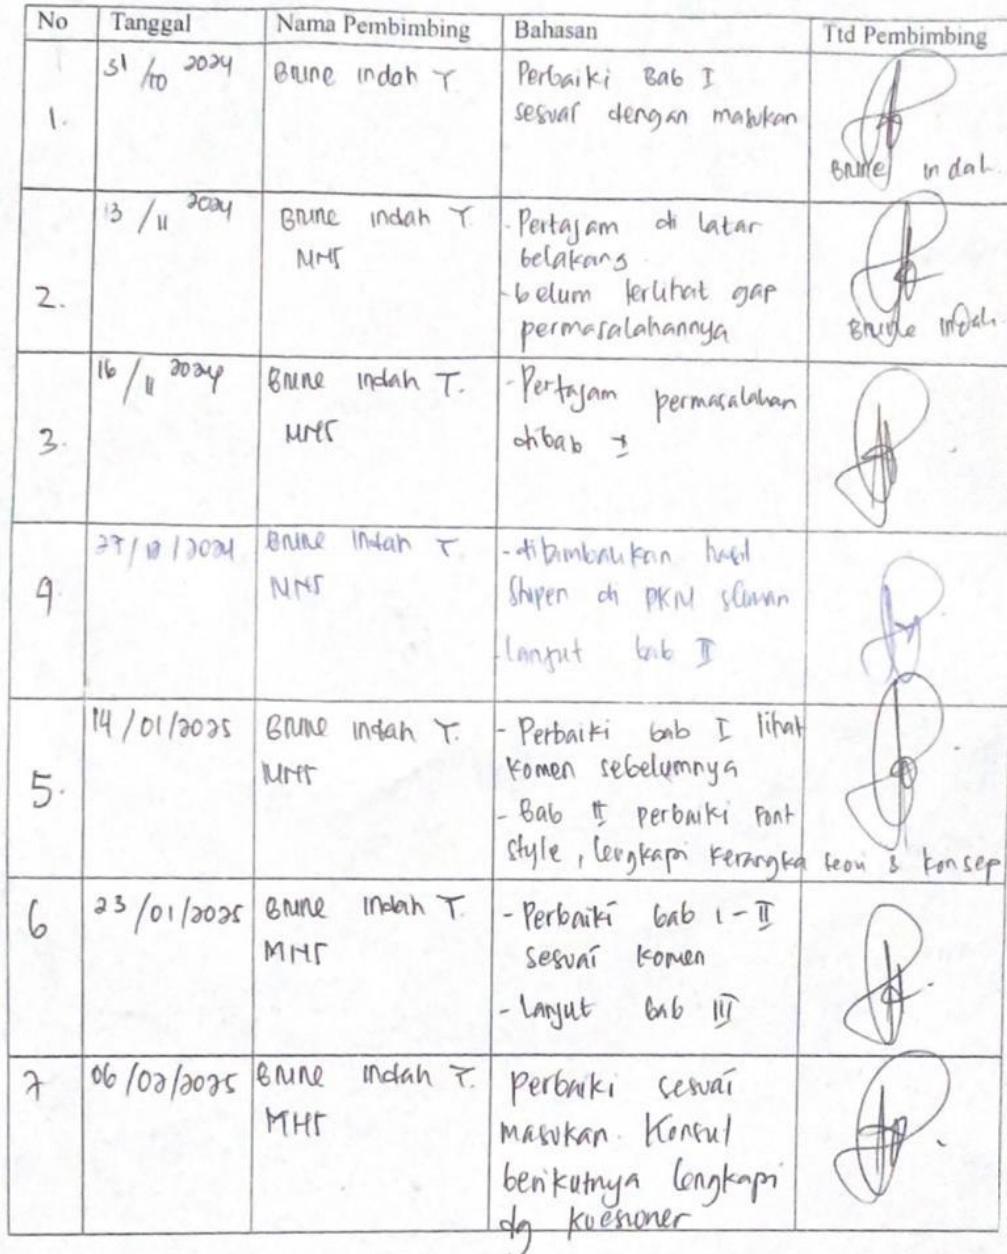 No Tanggal Nama Pembimbing Bahasan Ttd Pembimbing
1. 31/10 2024 Brune indah T. Perbaiki Bab I
sesuai dengan masukan
Brune indah.
2. 13/11 2024 Brune indah T. - Pertajam di latar
MHS belakang
- belum terlihat gap
permasalahannya
Brune indah.
3. 16/11 2024 Brune indah T. - Pertajam permasalahan
MHS dibab I
4. 27/12/2024 Brune indah T. hasil
MHS di PKM
- Lanjut bab II
5. 14/01/2025 Brune indah T. - Perbaiki bab I lihat
MHS komen sebelumnya
- Bab II perbaiki font
style, lengkapi kerangka teori & konsep
6 23/01/2025 Brune indah T. - Perbaiki bab I-II
MHS sesuai komen
- Lanjut bab III
7 06/02/2025 Brune indah T. perbaiki sesuai
MHS masukan. Konsul
berikutnya lengkapi
dg kuesioner